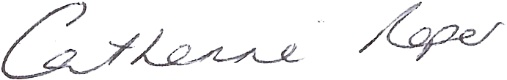 Catherine Roper